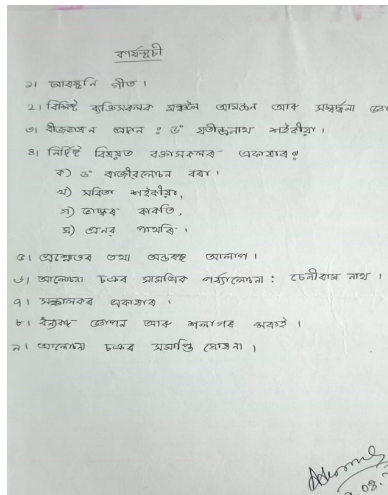 কাৰ্যসূচী
১। আৰম্ভণি গীত।
২। বিশিষ্ট ব্যক্তিসকলক মঞ্চলৈ আমন্ত্ৰণ আৰু সম্বৰ্দ্ধনা
৩। বীজভাষণ প্ৰদান : ড° যতীন্দ্ৰনাথ শইকীয়া।
৪। নিৰ্দিষ্ট বিষয়ত বক্তাসকলৰ
ক) ড° ৰাজীৱলোচন বৰা।
খ) সবিতা শইকীয়া,
গ) ভাস্কৰ কাকতি,
ঘ) প্ৰনৱ পাথৰি।
৫। প্ৰশ্নোত্তৰ তথা অন্তৰংগ আলাপ।
৬। আলোচনা চক্ৰৰ সামগ্ৰিক পৰ্য্যালোচনা : চেনীৰাম নাথ।
৭। সঞ্চালকৰ একাষাৰ।
৮। ধন্যবাদ জ্ঞাপন আৰু শলাগৰ শৰাই।
৯। আলোচনা চক্ৰৰ সমাপ্তি ঘোষণা।